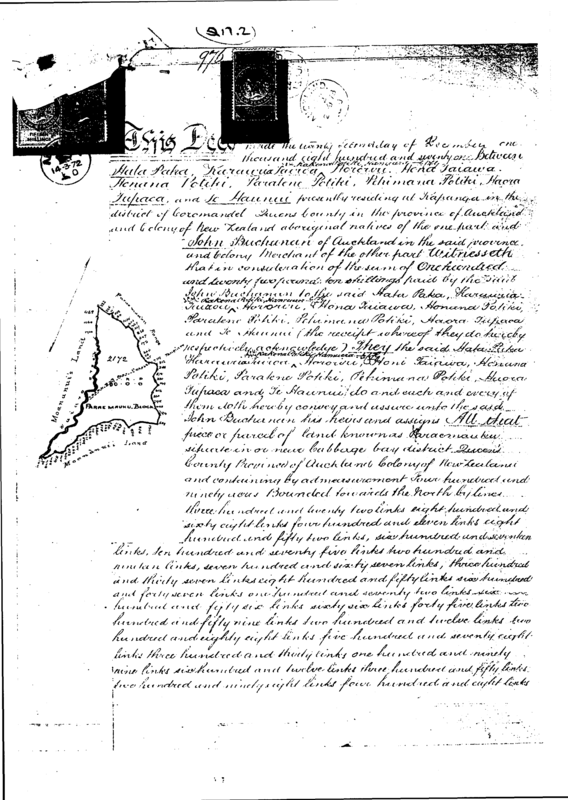 (917.2)
976
This Deed made the twenty second day of November one
thousand eight hundred and seventy one Between
Mata Paka, Karauria
Honana Potiki, Paratene Potiki, Pehimana Potiki, Haora
Tupaea, and Te Haunui presently residing at Kapanga in the
district of Coromandel Queens County in the province of Auckland
and Colony of New Zealand aboriginal natives of the one part and
John Buchanan of Auckland in the said province
and Colony Merchant of the other part Witnesseth
that in consideration of the sum of One hundred
and twenty two pounds ten shillings paid by the said
John Buchanan to the said Mata Paka, Karauria
Honana Potiki,
Paratene Potiki, Pehimana Potiki, Haora Tupaea
and Te Haunui (the receipt whereof they do hereby
respectively acknowledge) They the said Mata Paka
Honana
Potiki, Paratene Potiki, Pehimana Potiki, Haora
Tupaea and Te Haunui do and each and every of
them doth hereby convey and assure unto the said
John Buchanan his heirs and assigns All that
piece or parcel of land known as
situate in or near Cabbage bay district Queens
County Province of Auckland Colony of New Zealand
and containing by admeasurement Four hundred and
ninety acres Bounded towards the North by lines
three hundred and twenty two links eight hundred and
sixty eight links four hundred and eleven links eight
hundred and fifty two links, six hundred and seventeen
links, ten hundred and seventy five links two hundred and
nineteen links, seven hundred and sixty seven links, three hundred
and thirty seven links eight hundred and fifty links six hundred
and forty seven links one hundred and seventy two links six
hundred and fifty six links sixty six links forty five links two
hundred and fifty nine links two hundred and twelve links two
hundred and eighty eight links five hundred and seventy eight
links three hundred and thirty links one hundred and ninety
nine links six hundred and twelve links three hundred and fifty links
two hundred and ninety eight links four hundred and eight links
14·3·72
Moehaunui Land
2172